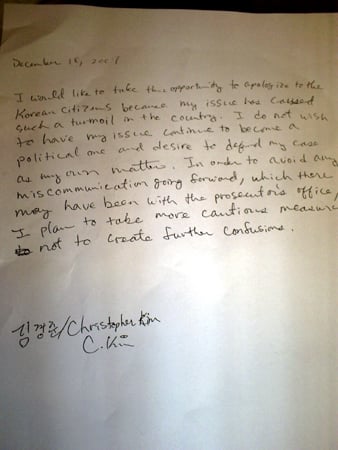 December 15, 2007
I would like to take this opportunity to apologize to the
Korean citizens because my issue has caused
such a turmoil in the country. I do not wish
to have my issue continue to become a
political one and desire to defend my case
as my own matter. In order to avoid any
miscommunication going forward, which there
may have been with the prosecutor's office,
I plan to take more cautious measure
not to create further confusions.
김경준/Christopher Kim
C. Kim